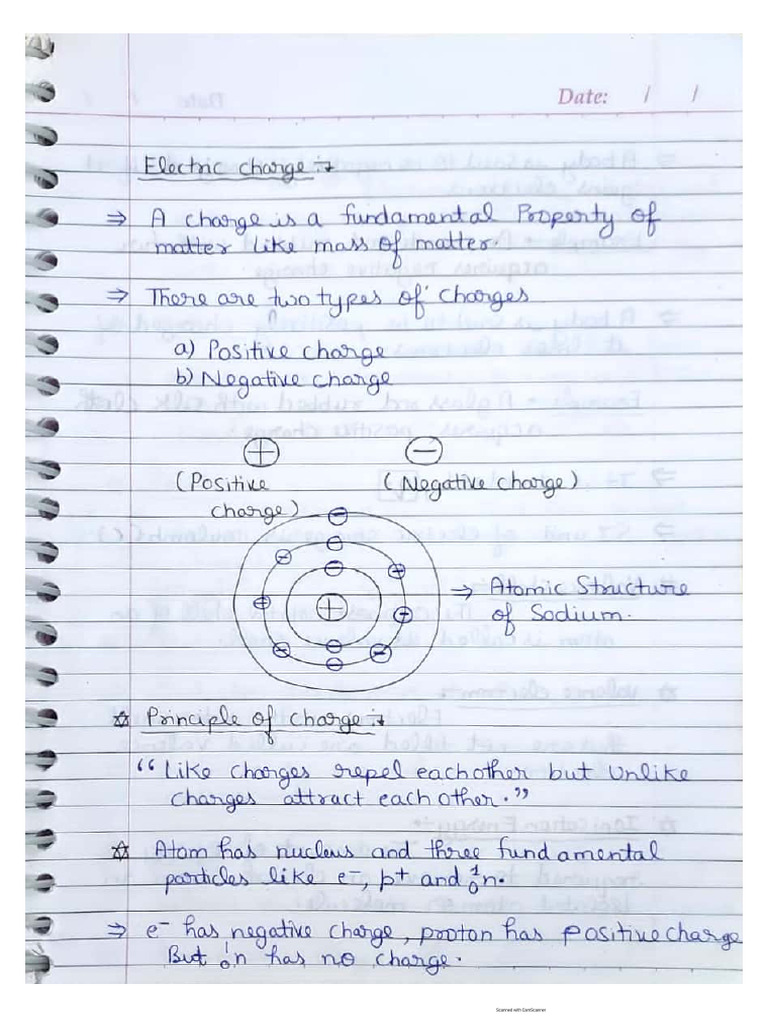 Date: / /
Electric charge :→
⇒ A charge is a fundamental Property of
matter like mass of matter.
⇒ There are two types of charges
a) Positive charge
b) Negative charge
+ −
(Positive (Negative charge)
charge)
→ Atomic Structure
of Sodium.
☆ Principle of charge :→
“Like charges repel eachother but Unlike
charges attract each other.”
☆ Atom has nucleus and three fundamental
particles like e⁻, p⁺ and ¹₀n.
⇒ e⁻ has negative charge, proton has positive charge
But ¹₀n has no charge.
Scanned with CamScanner